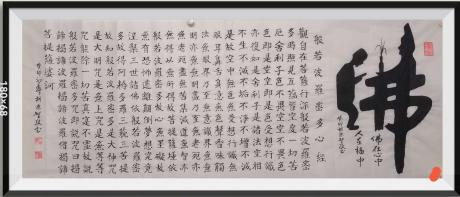 佛
佛在心中
人在福中
般若波羅密多心經
觀自在菩薩行深般若波羅密
多時照見五蘊皆空度一切苦
厄舍利子色不異空空不異色
色即是空空即是色受想行識
亦復如是舍利子是諸法空相
不生不滅不垢不淨不增不減
是故空中無色無受想行識無
眼耳鼻舌身意無色聲香味觸
法無眼界乃至無意識界無無
明亦無無明盡乃至無老死亦
無老死盡無苦集滅道無智亦
無得以無所得故菩提薩埵依
般若波羅密多故心無罣礙
無有恐怖遠離顛倒夢想究竟
涅槃三世諸佛依般若波羅密
多故得阿耨多羅三藐三菩提
故知般若波羅密多是大神咒
是大明咒是無上咒是無等等
咒能除一切苦真實不虛故說
般若波羅密多咒即說咒曰揭
諦揭諦波羅揭諦波羅僧揭諦
菩提薩婆訶
180x68